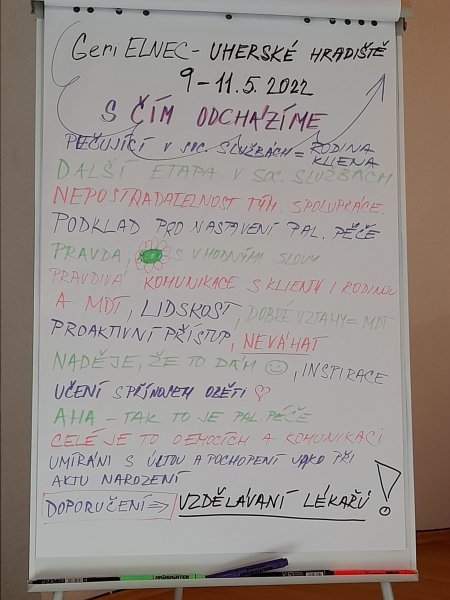 Geri ELNEC - UHERSKÉ HRADIŠTĚ
9-11.5.2022
S ČÍM ODCHÁZÍME
PEČUJÍCÍ V SOC. SLUŽBÁCH = RODINA
KLIENA
DALŠÍ ETAPA V SOC. SLUŽBÁCH
NEPOSTRADATELNOST TÝM. SPOLUPRÁCE
PODKLAD PRO NASTAVENÍ PAL. PÉČE
PRAVDA, S VHODNÝMI SLOVY
PRAVDIVÁ KOMUNIKACE S KLIENTY I RODINOU
A MDT, LIDSKOST, DOBRÉ VZTAHY = MDT
PROAKTIVNÍ PŘÍSTUP, NEVÁHAT
NADĚJE, ŽE TO DÁM ☺, INSPIRACE
UČENÍ S PŘÍNOJEM OBĚTI ♡
AHA - TAK TO JE PAL. PÉČE
CELÉ JE TO O EMOCÍCH A KOMUNIKACI
UMÍRÁNÍ S ÚCTOU A POCHOPENÍ JAKO PŘI
AKTU NAROZENÍ
DOPORUČENÍ => VZDĚLÁVANÍ LÉKAŘŮ !
HIGHLIGHTER